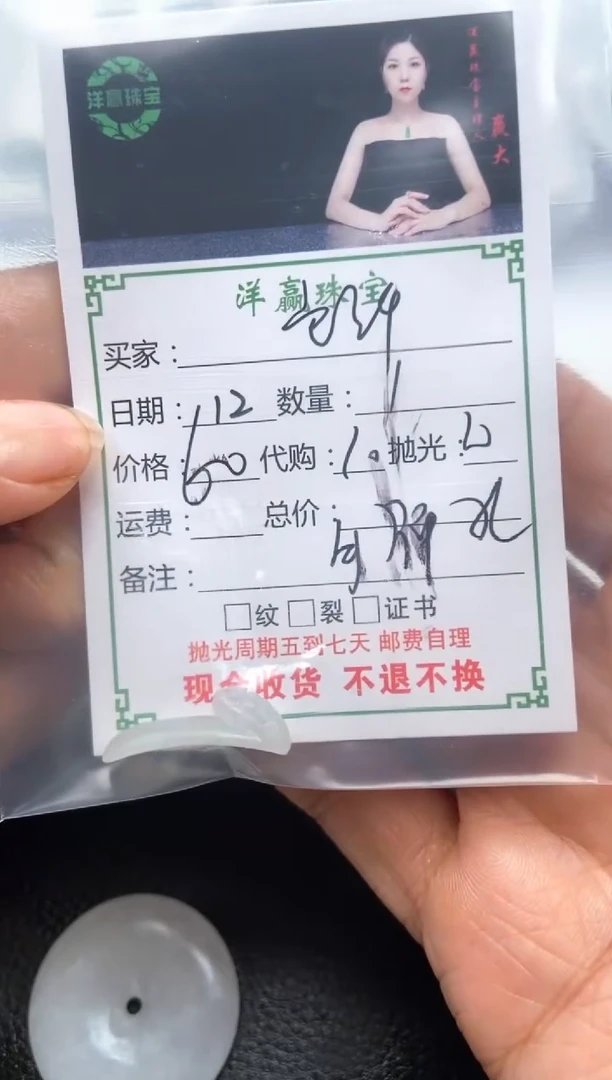 洋赢珠宝
赢大
洋赢珠宝
买家：
日期：12 数量：1
价格：60 代购：10 抛光：
运费： 总价：
备注：
纹 裂 证书
抛光周期五到七天 邮费自理
现金收货 不退不换